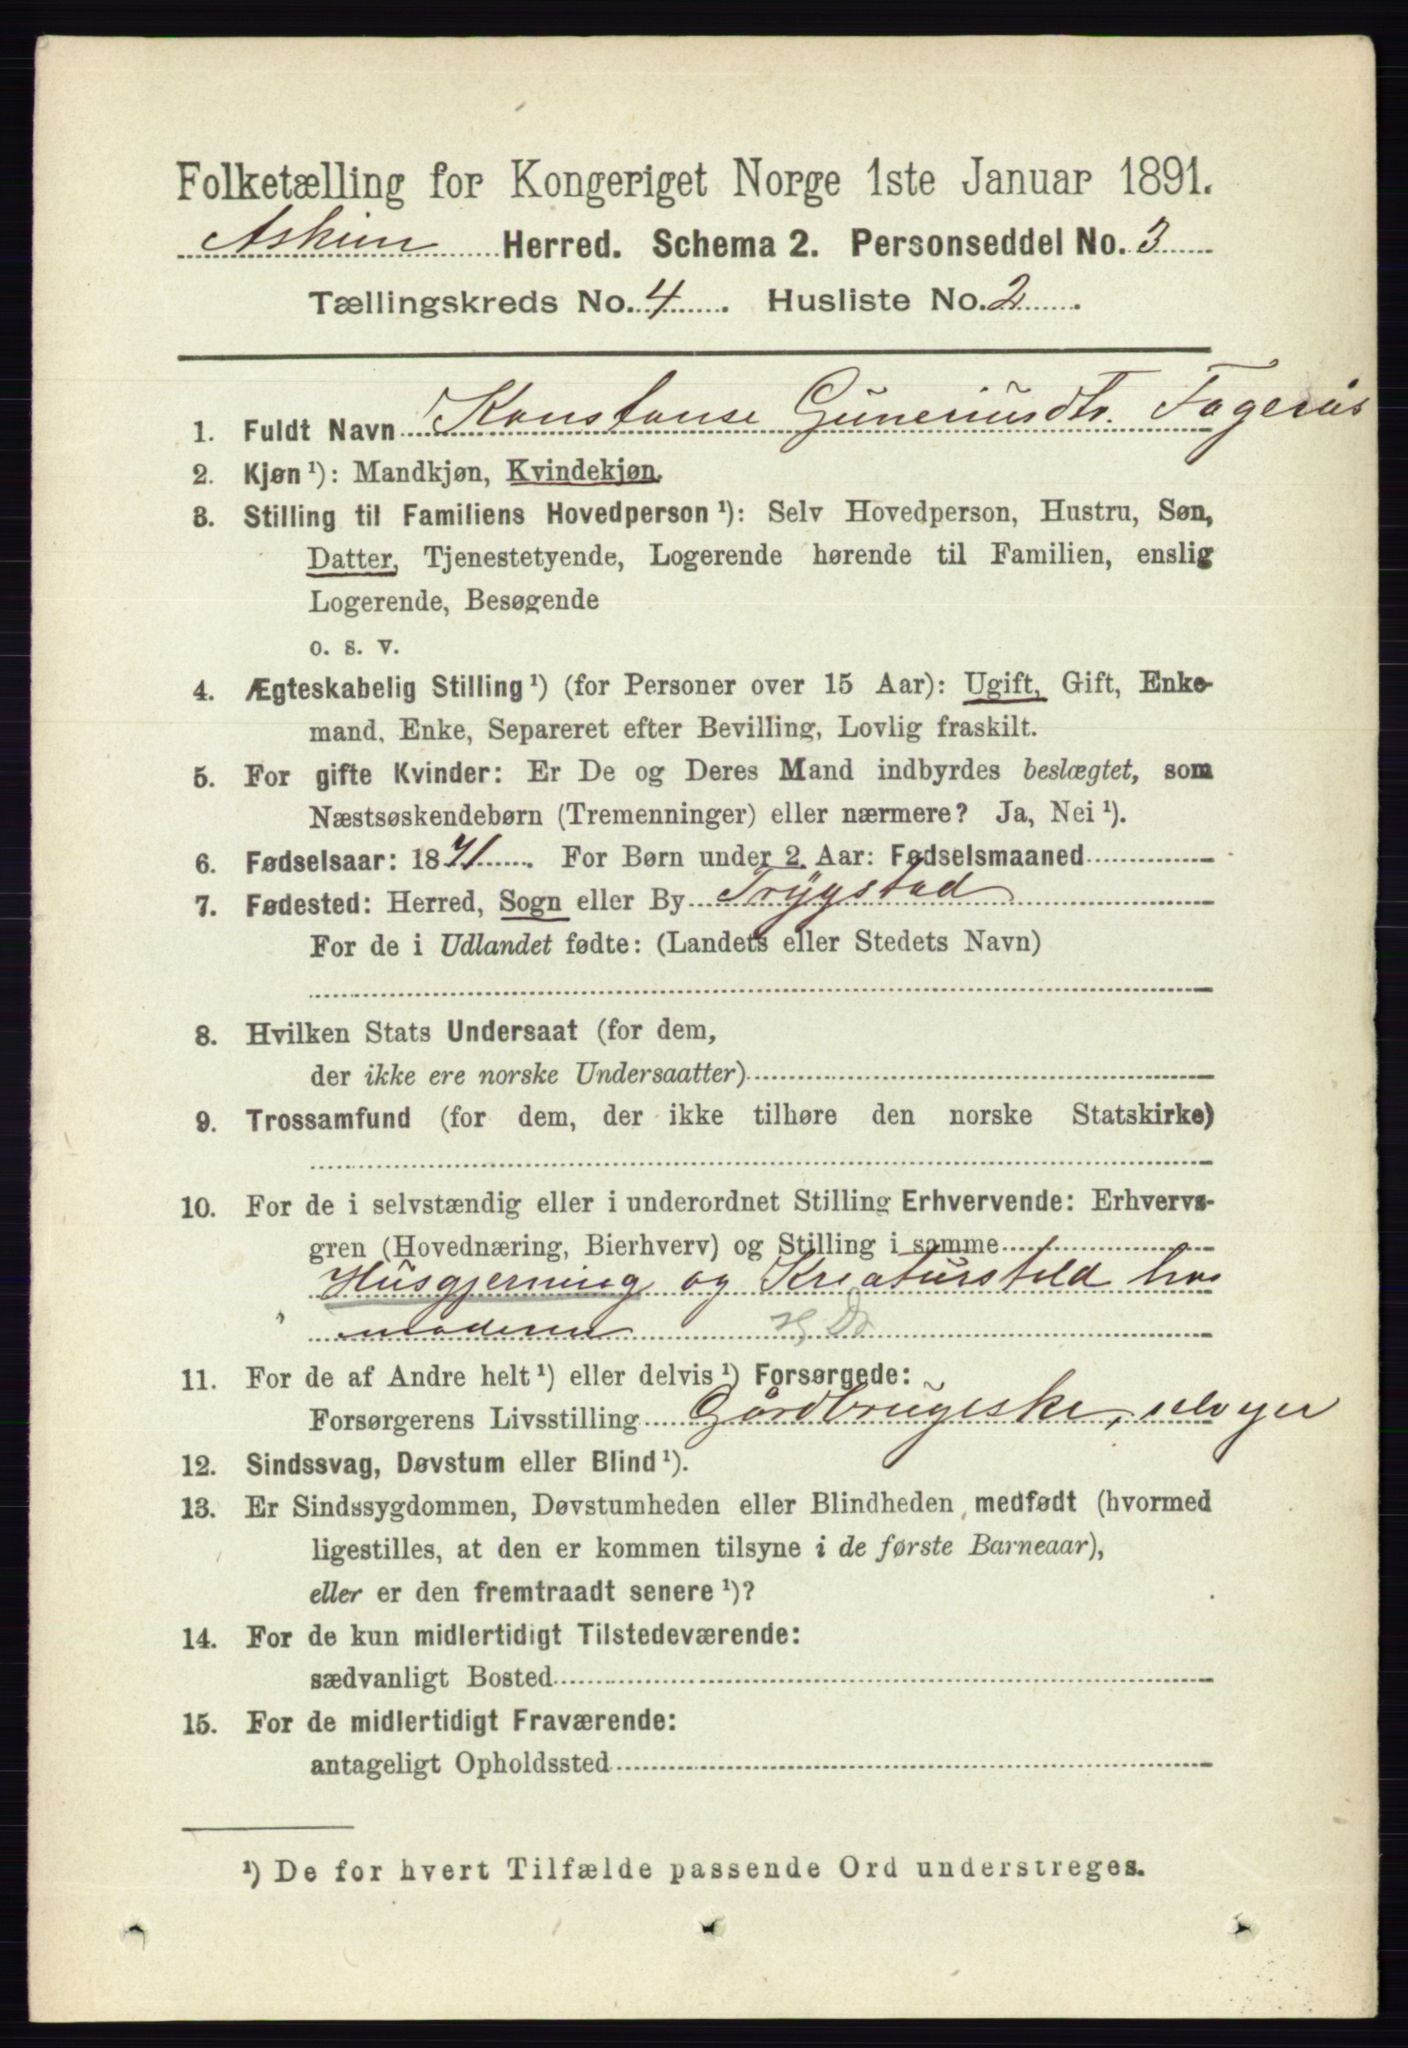 Folketælling for Kongeriget Norge 1ste Januar 1891.
Askim Herred. Schema 2. Personseddel No. 3
Tællingskreds No. 4. Husliste No. 2.
1. Fuldt Navn Konstanse Guneriusdtr. Fagerås
2. Kjøn ¹): Mandkjøn, Kvindekjøn.
3. Stilling til Familiens Hovedperson ¹): Selv Hovedperson, Hustru, Søn,
Datter, Tjenestetyende, Logerende hørende til Familien, enslig
Logerende, Besøgende
o. s. v.
4. Ægteskabelig Stilling ¹) (for Personer over 15 Aar): Ugift, Gift, Enke-
mand, Enke, Separeret efter Bevilling, Lovlig fraskilt.
5. For gifte Kvinder: Er De og Deres Mand indbyrdes beslægtet, som
Næstsøskendebørn (Tremenninger) eller nærmere? Ja, Nei ¹).
6. Fødselsaar: 1871. For Børn under 2 Aar: Fødselsmaaned
7. Fødested: Herred, Sogn eller By Trygstad
For de i Udlandet fødte: (Landets eller Stedets Navn)
8. Hvilken Stats Undersaat (for dem,
der ikke ere norske Undersaatter)
9. Trossamfund (for dem, der ikke tilhøre den norske Statskirke)
10. For de i selvstændig eller i underordnet Stilling Erhvervende: Erhvervs-
gren (Hovednæring, Bierhverv) og Stilling i samme
Husgjerning og Kreatursteld hos
moderen
11. For de af Andre helt ¹) eller delvis ¹) Forsørgede:
Forsørgerens Livsstilling Gårdbrugerske, selveier
12. Sindssvag, Døvstum eller Blind ¹).
13. Er Sindssygdommen, Døvstumheden eller Blindheden medfødt (hvormed
ligestilles, at den er kommen tilsyne i de første Barneaar),
eller er den fremtraadt senere ¹)?
14. For de kun midlertidigt Tilstedeværende:
sædvanligt Bosted
15. For de midlertidigt Fraværende:
antageligt Opholdssted
¹) De for hvert Tilfælde passende Ord understreges.